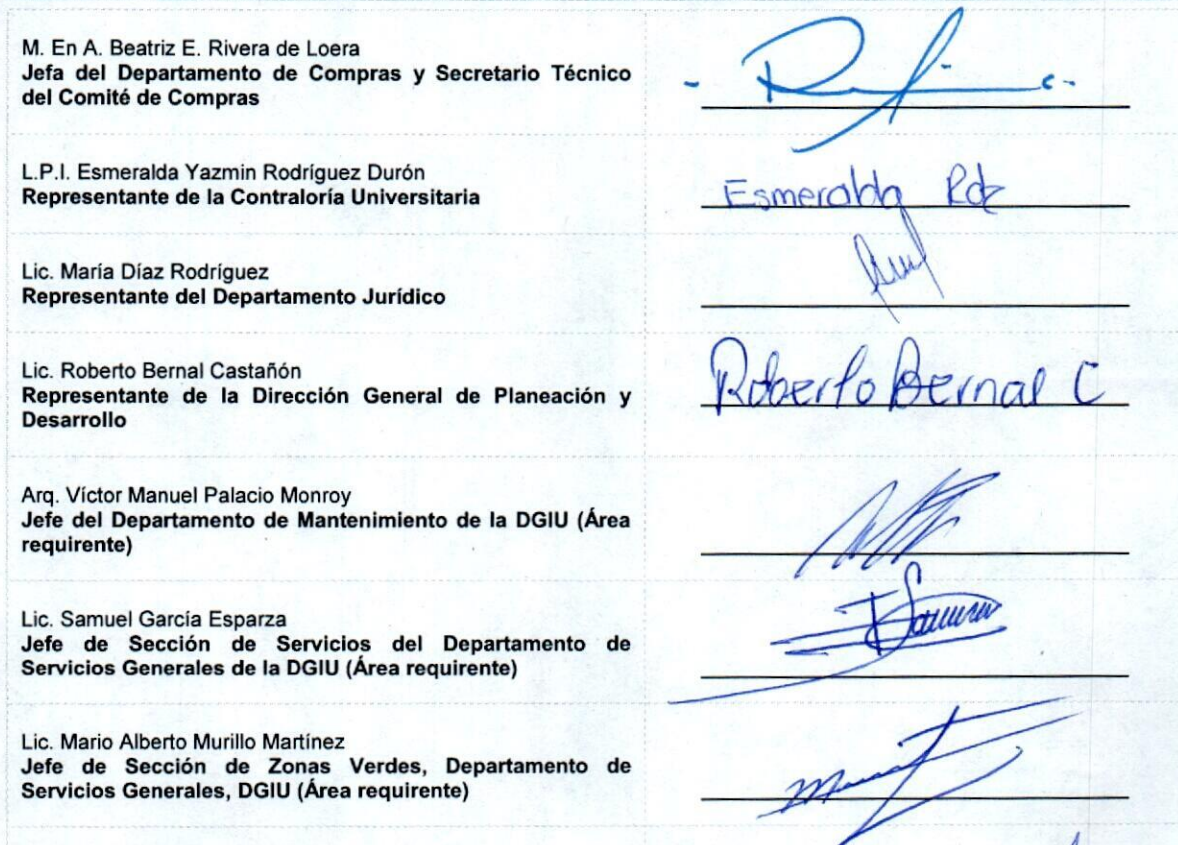 M. En A. Beatriz E. Rivera de Loera
Jefa del Departamento de Compras y Secretario Técnico
del Comité de Compras
L.P.I. Esmeralda Yazmin Rodríguez Durón
Representante de la Contraloría Universitaria
Esmeralda Rdz
Lic. María Díaz Rodríguez
Representante del Departamento Jurídico
Lic. Roberto Bernal Castañón
Representante de la Dirección General de Planeación y
Desarrollo
Roberto Bernal C
Arq. Víctor Manuel Palacio Monroy
Jefe del Departamento de Mantenimiento de la DGIU (Área
requirente)
Lic. Samuel García Esparza
Jefe de Sección de Servicios del Departamento de
Servicios Generales de la DGIU (Área requirente)
Lic. Mario Alberto Murillo Martínez
Jefe de Sección de Zonas Verdes, Departamento de
Servicios Generales, DGIU (Área requirente)